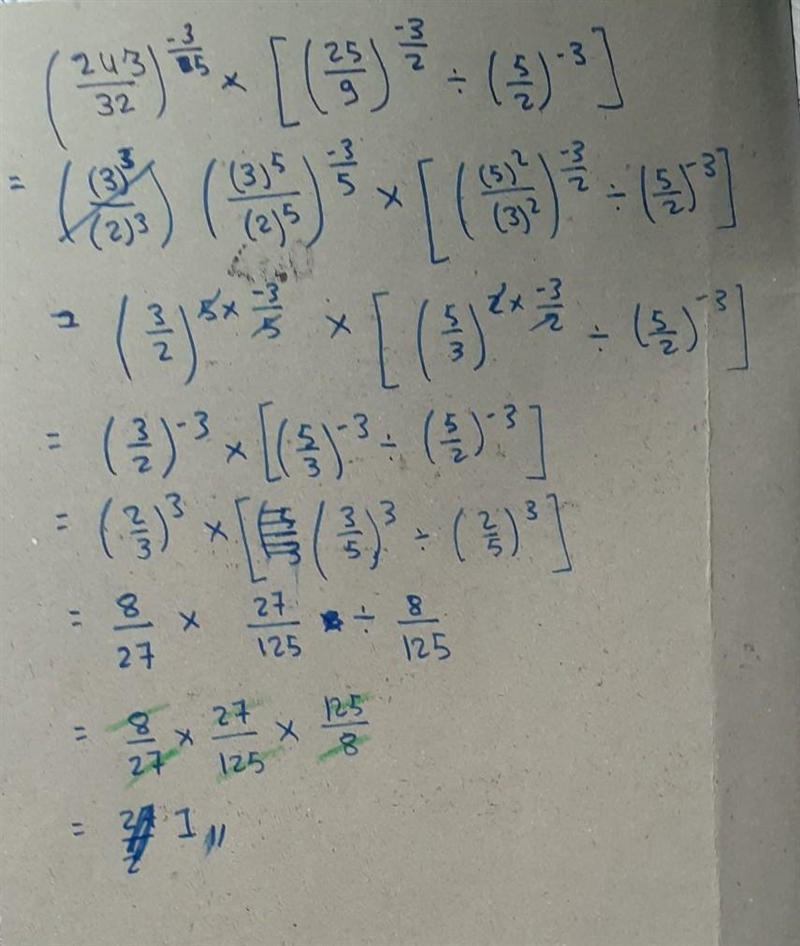 (243/32)^(-3/5) × [(25/9)^(-3/2) ÷ (5/2)^-3]
= ((3)^5/(2)^5)^(-3/5) × [((5)^2/(3)^2)^(-3/2) ÷ (5/2)^-3]
= (3/2)^(5 × -3/5) × [(5/3)^(2 × -3/2) ÷ (5/2)^-3]
= (3/2)^-3 × [(5/3)^-3 ÷ (5/2)^-3]
= (2/3)^3 × [(3/5)^3 ÷ (2/5)^3]
= 8/27 × 27/125 ÷ 8/125
= 8/27 × 27/125 × 125/8
= 1